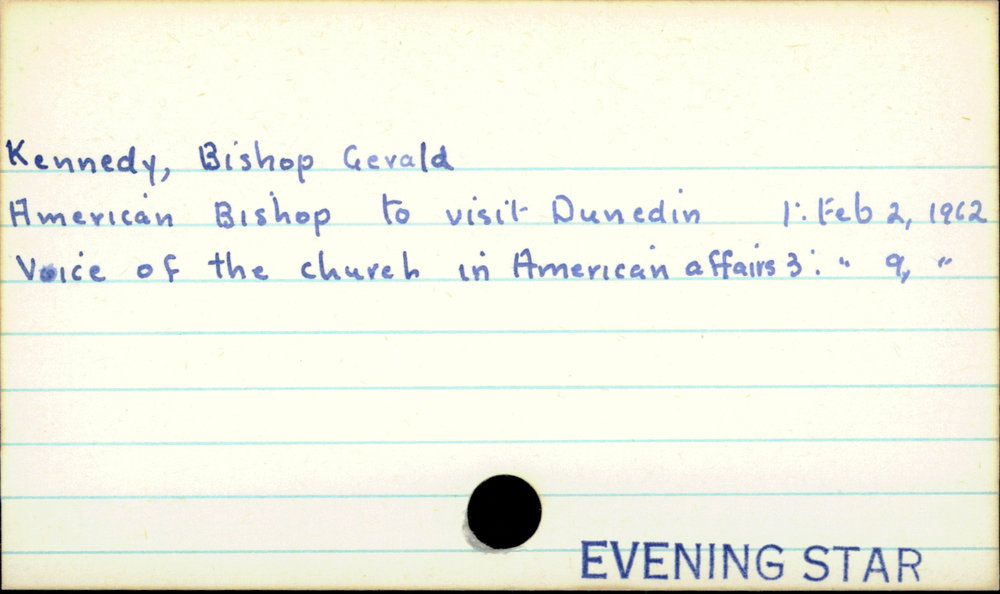 Kennedy, Bishop Gerald
American Bishop to visit Dunedin 1: Feb 2, 1962
Voice of the church in American affairs 3: " 9, "
EVENING STAR